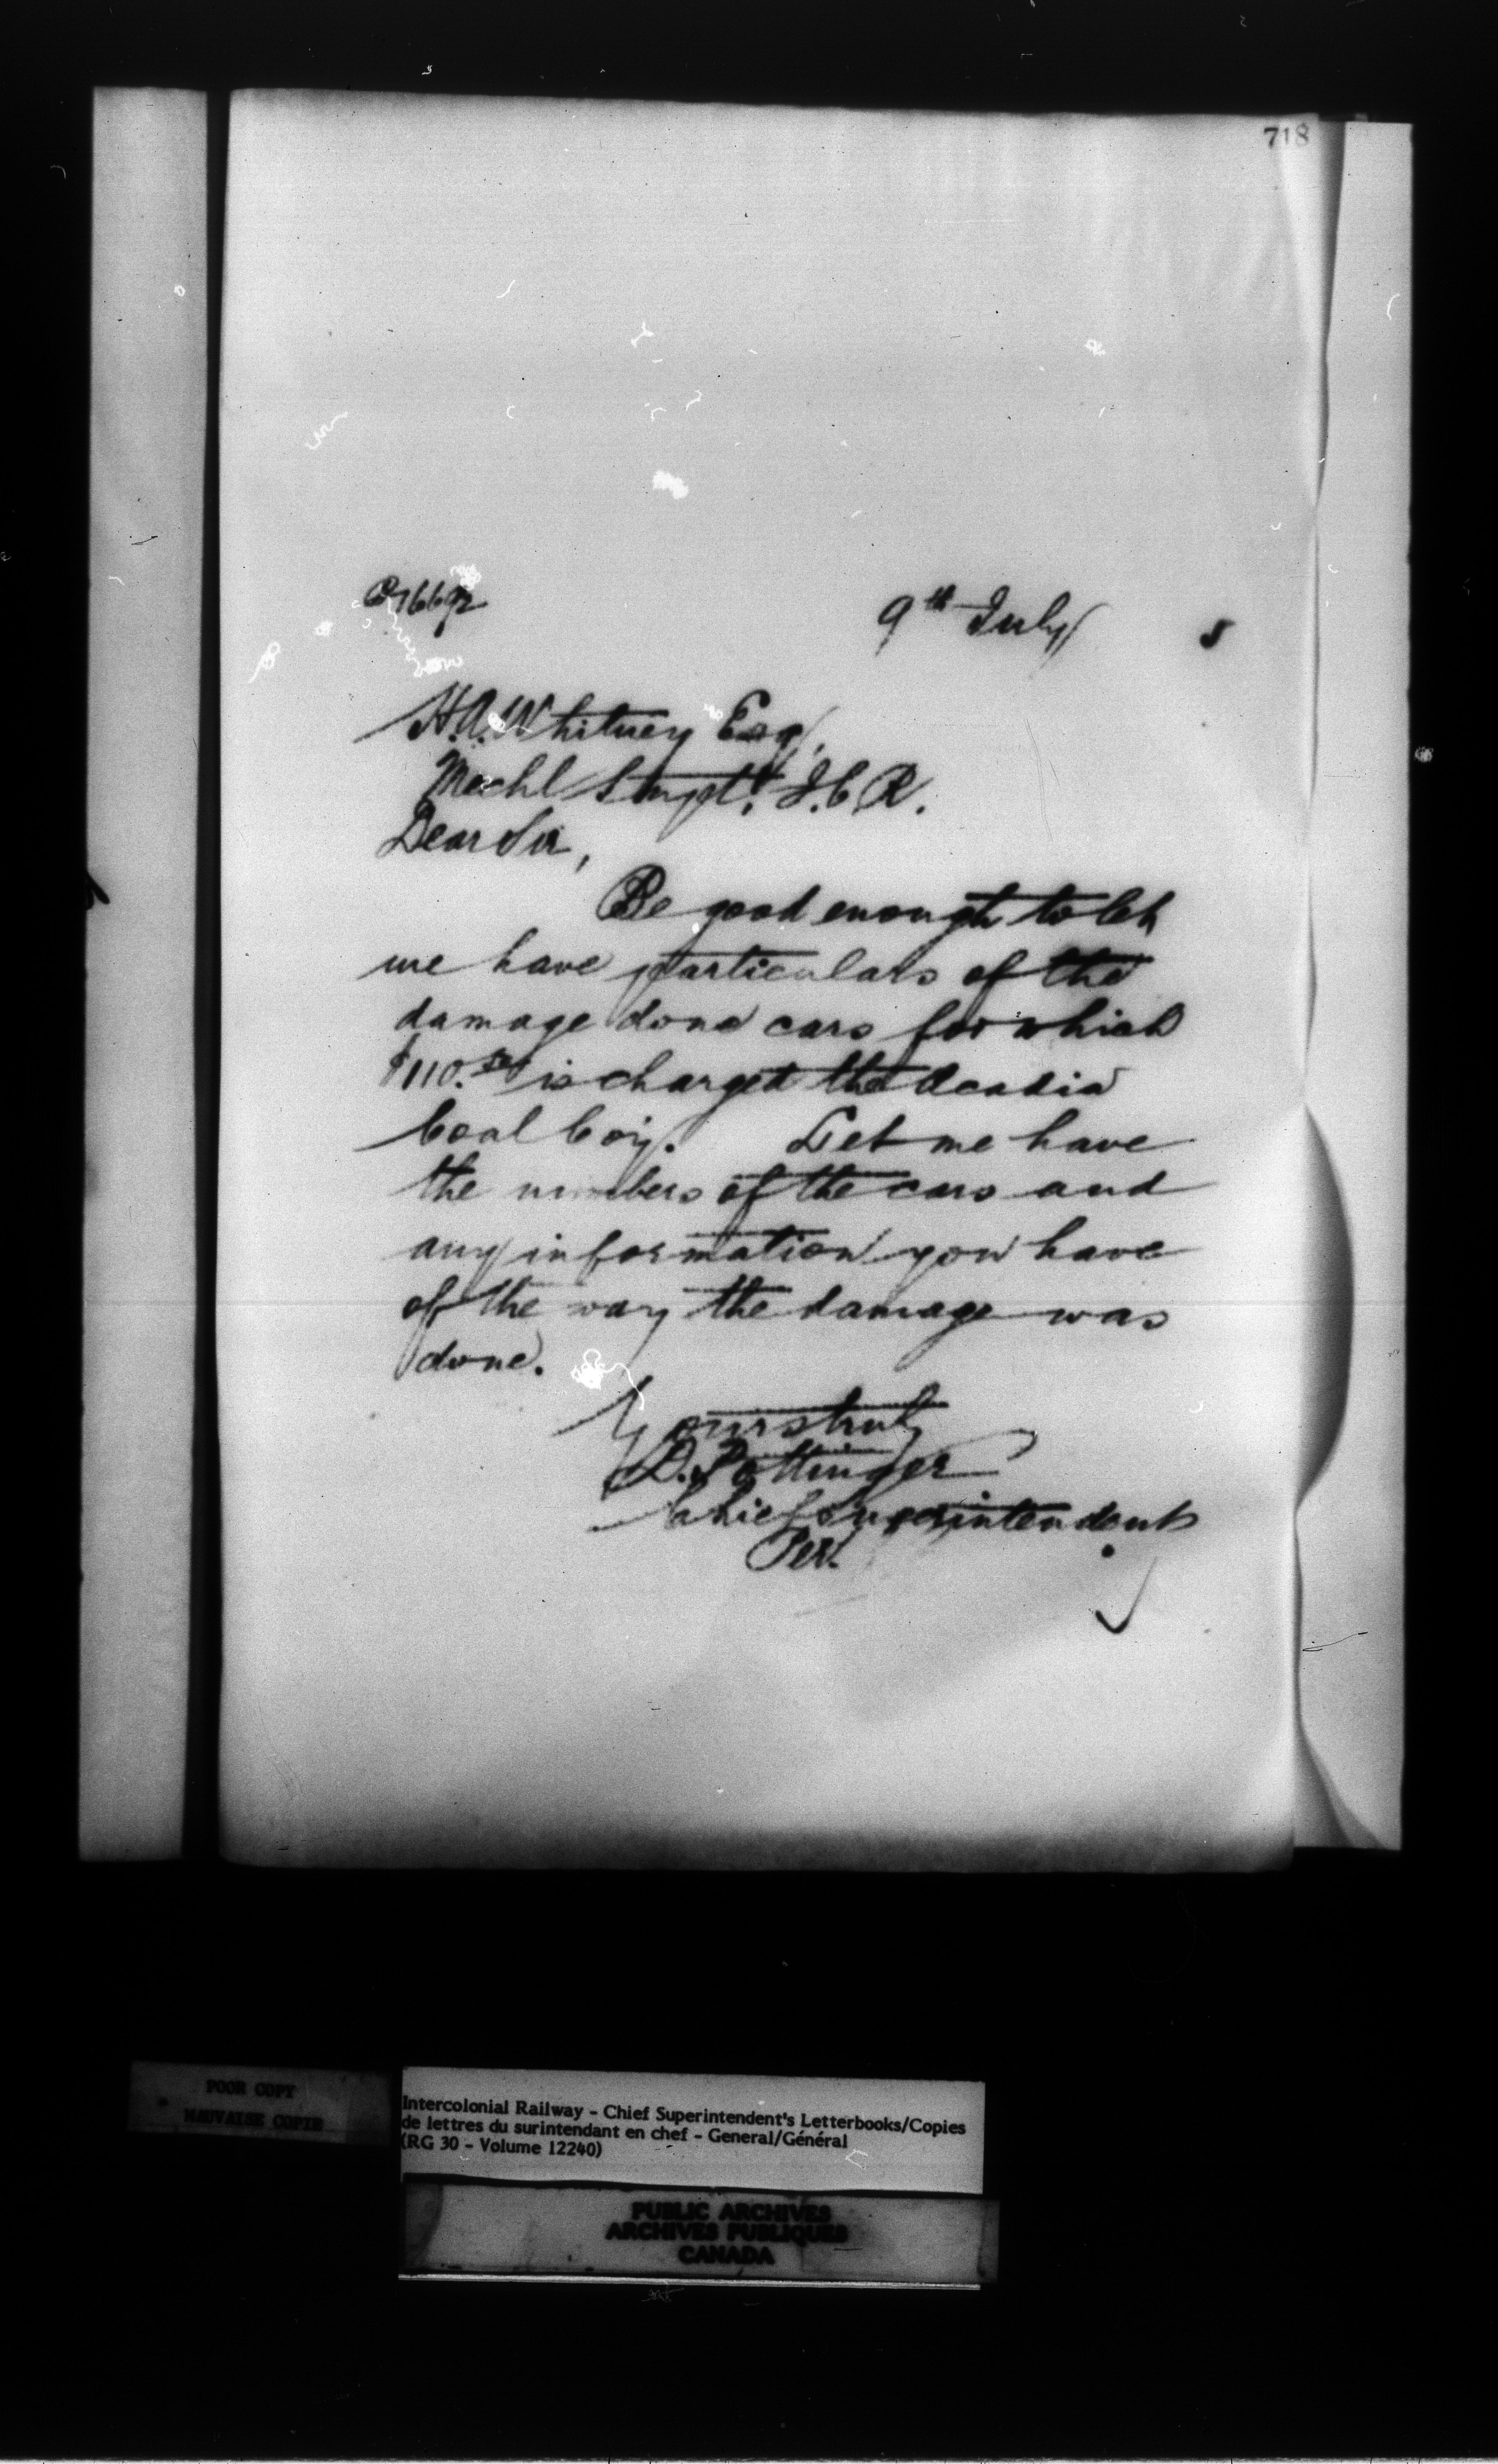 718
9th July 5
H.A. Whitney Esq.
Mechl Supt. I.C.R.
Dear Sir,
Be good enough to let
me have particulars of the
damage done cars for which
$110. is charged the Acadia
Coal Coy. Let me have
the numbers of the cars and
any information you have
of the way the damage was
done.
Yours truly
D. Pottinger
Chief Superintendent
Per.
POOR COPY
MAUVAISE COPIE
Intercolonial Railway - Chief Superintendent's Letterbooks/Copies
de lettres du surintendant en chef - General/Général
(RG 30 - Volume 12240)
PUBLIC ARCHIVES
ARCHIVES PUBLIQUES
CANADA